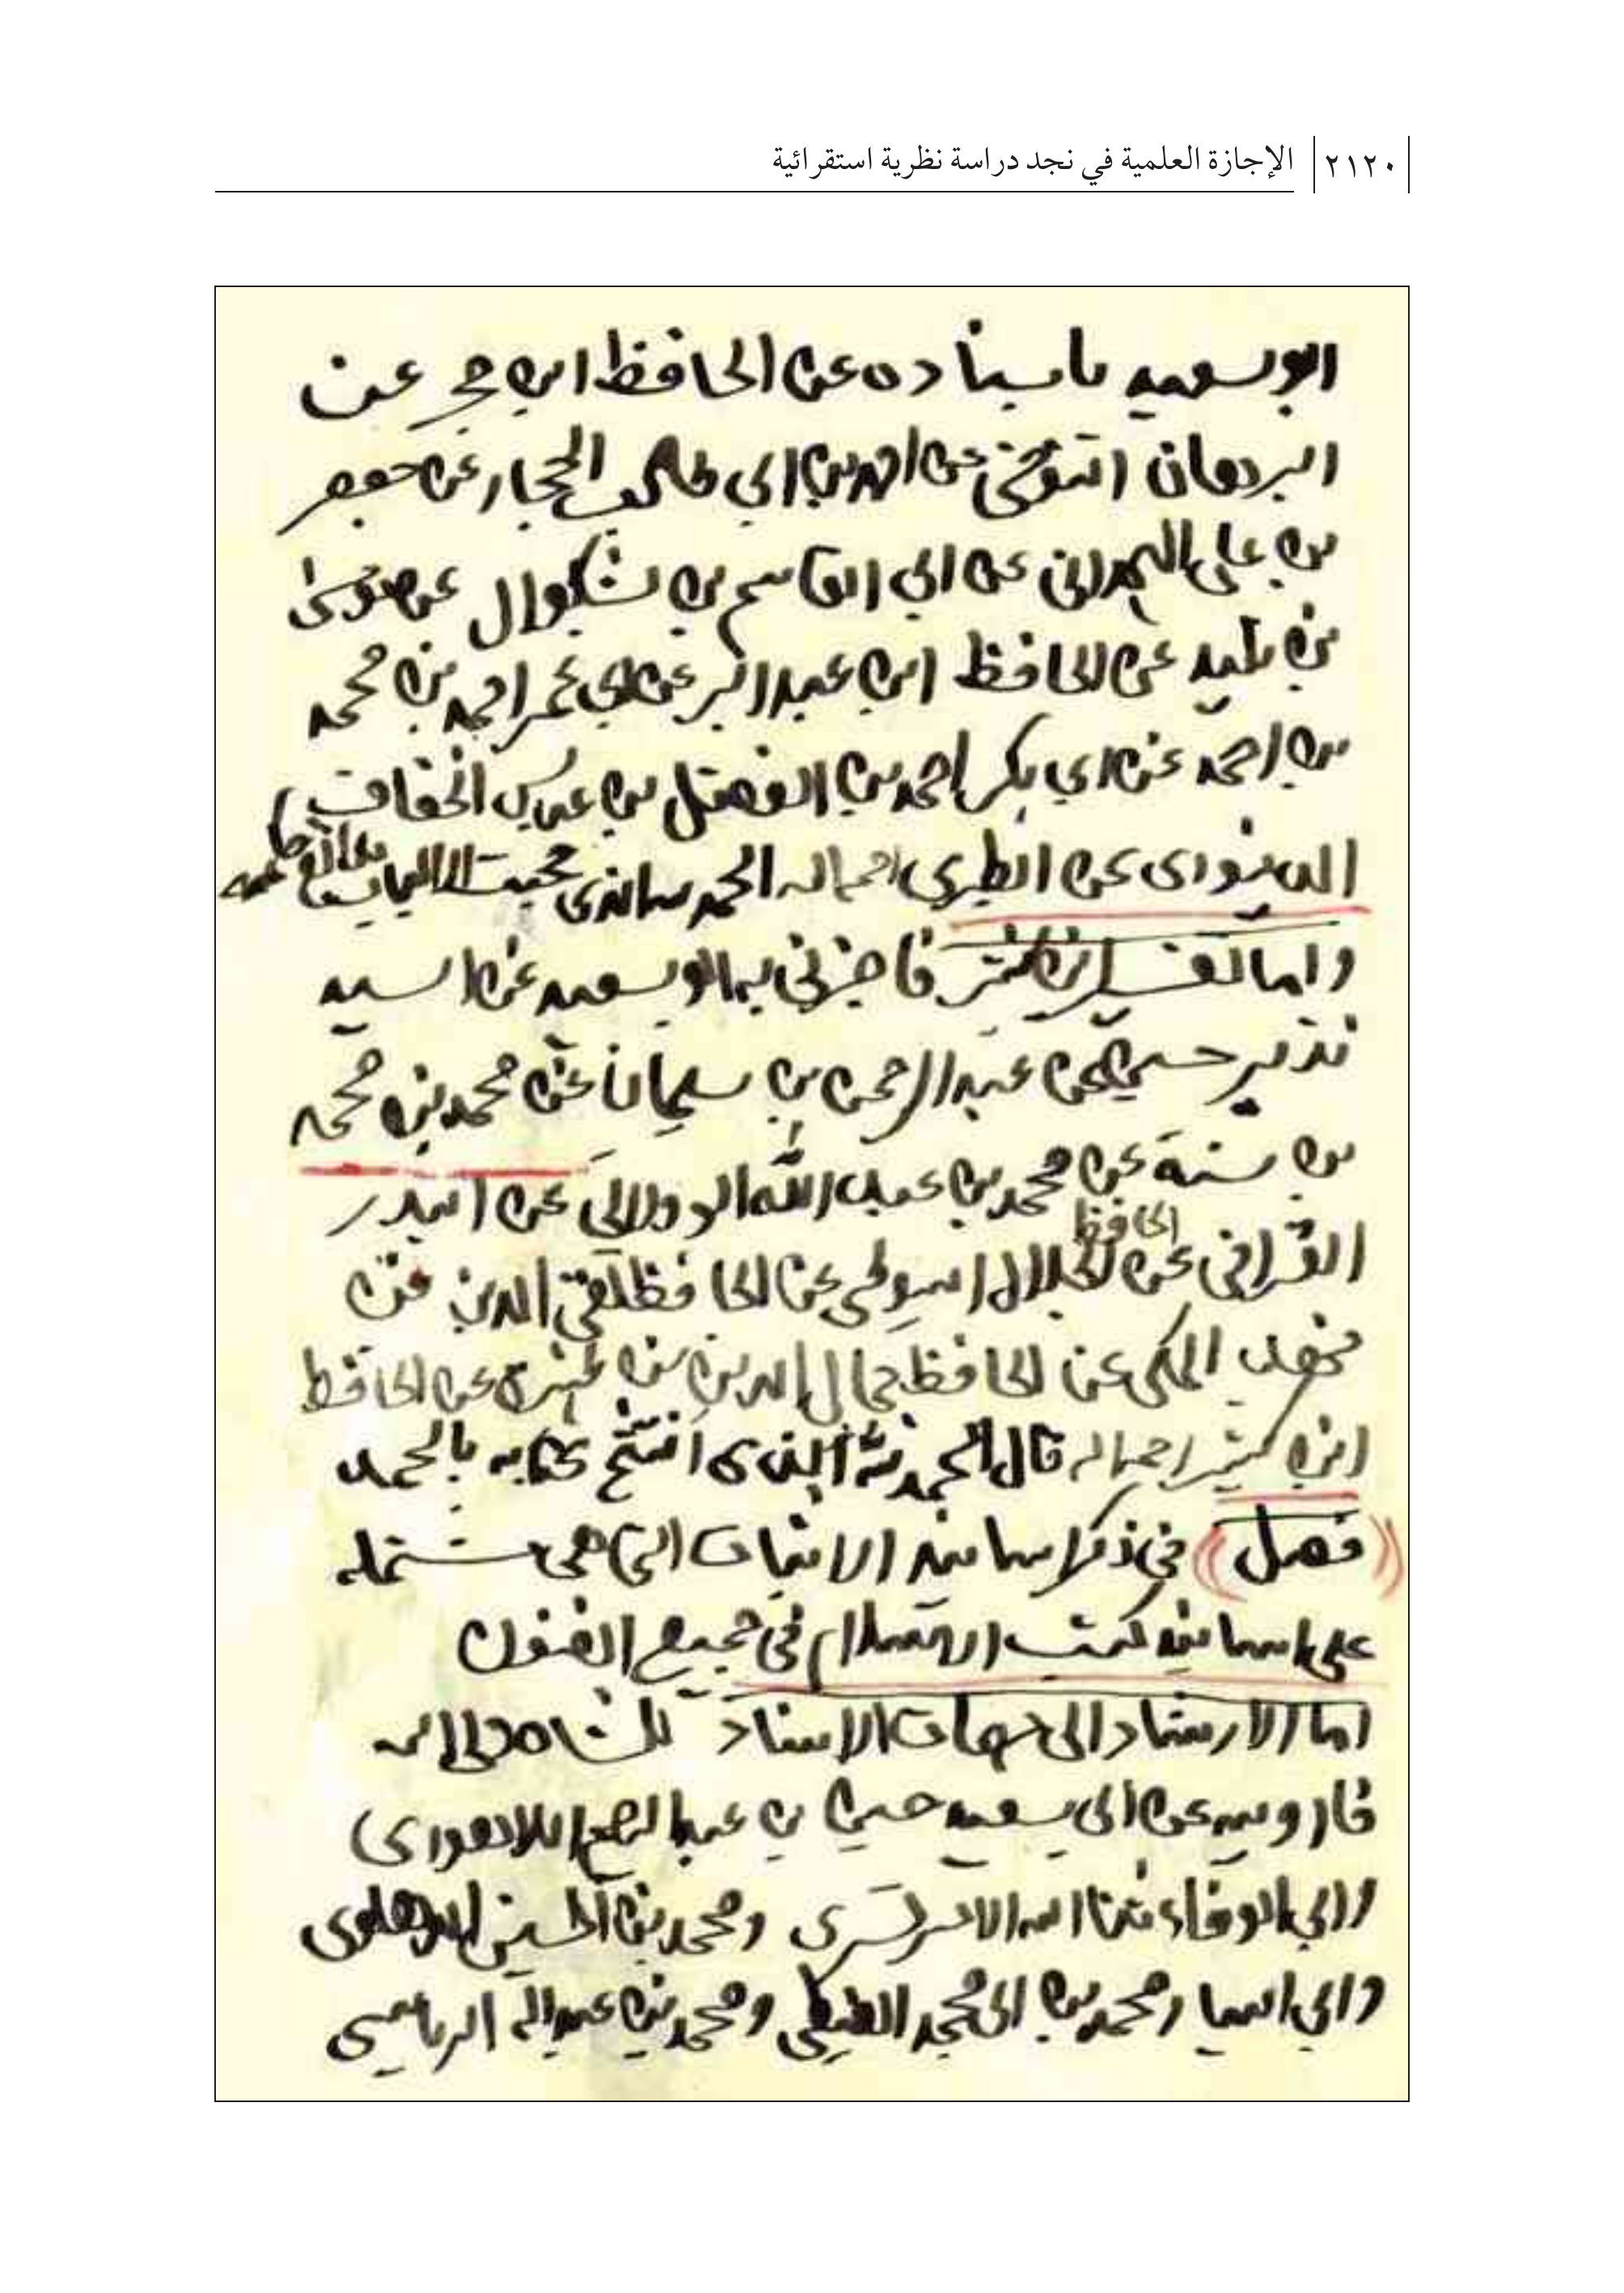 ٢١٢٠ الإجازة العلمية في نجد دراسة نظرية استقرائية
ابو سعيد باسناده عن الحافظ ابن حجر عن
البرهان التنوخي عن احمد بن ابي طالب الحجار عن جعفر
بن علي الهمداني عن ابي القاسم بن بشكوال عن موسى
بن تليد عن الحافظ ابن عبد البر عن ابي عمر احمد بن محمد
بن احمد عن ابي بكر احمد بن الفضل بن عباس الخفاف
الدينوري عن الطبري رحمه الله الحمد لله الذي حجبت الالباب
واما تفسير ابن كثير فاجزني به ابو سعيد عن السيد
نذير حسين عن عبد الرحمن بن سليمان عن محمد بن محمد
بن سنة عن محمد بن عبد الله الوولالي عن البدر
القرافي عن الحافظ الجلال السيوطي عن الحافظ تقي الدين بن
فهد المكي عن الحافظ جمال الدين بن ظهيرة عن الحافظ
ابن كثير رحمه الله قال الحمد لله الذي افتتح كتابه بالحمد
((فصل)) في ذكر اسانيد الاثبات التي هي مشتملة
على اسانيد كتب الاسلام في جميع الفنون
اما الارشاد الى جهات الاسناد
فارويه عن ابي سعيد حسين بن عبد الرحيم اللاهوري
وابي الوفاء ثناء الله الامرتسري ومحمد بن الحسين الدهلوي
وابي اليسار محمد بن ابي محمد ومحمد بن عبد الله الرياسي